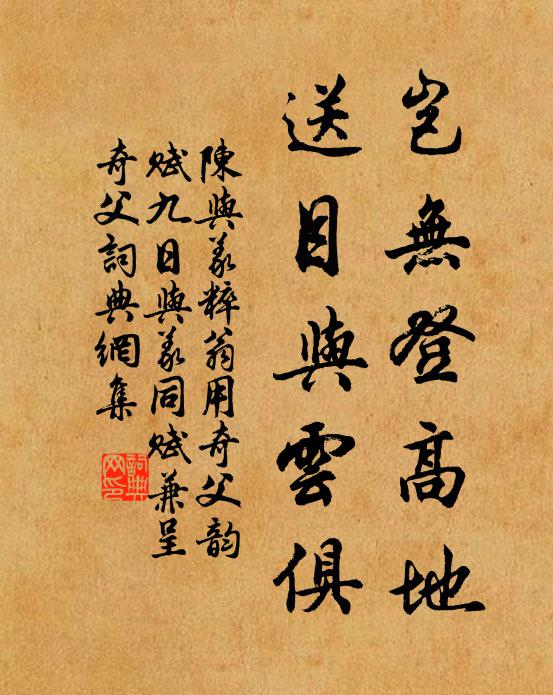 豈無登高地
送目與雲俱
陳與義粹翁用奇父韵
賦九日與義同賦兼呈
奇父詞典網集
詞典
网印